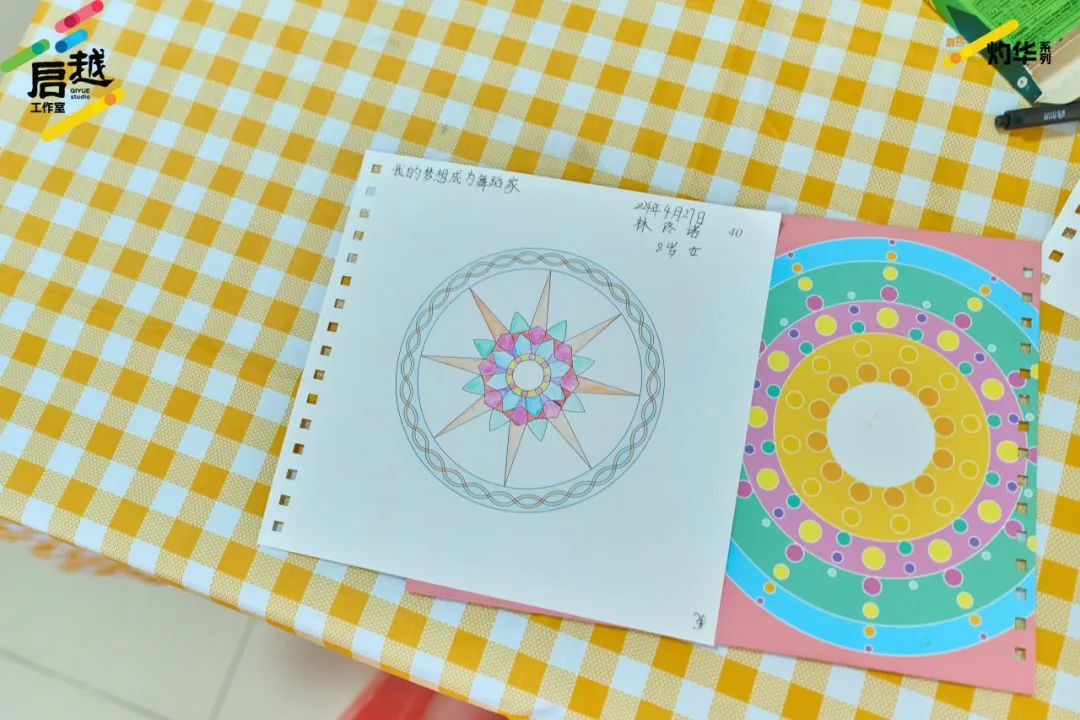 启越
QIYUE
studio
工作室
灼华系列
我的梦想成为舞蹈家
2024年4月27日
林佟诺
40
8岁 女